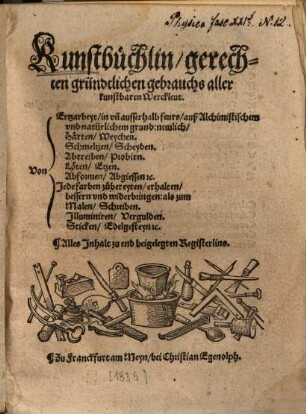 Physica fasc XXI. N. 12.
Kunstbüchlin/ gerech-
ten gründtlichen gebrauchs aller
kunstbaren Werckleut.
Von
Ertzarbeyt/ in vñ ausserhalb feurs/ auß Alchimistischem
vnd natürlichem grund: nemlich/
Härten/ Weychen.
Schmeltzen/ Scheyden.
Abtreiben/ Probirn.
Löten/ Etzen.
Abformen/ Abgiessen ⁊c.
Jede farben zübereyten/ erhalten/
bessern vnd widerbringen: als zum
Malen/ Schreiben.
Illuminiren/ Vergulden.
Sticken/ Edelgesteyn ⁊c.
¶ Alles Inhalt zu end beigelegten Registerlins.
¶ Zu Franckfurt am Meyn/ bei Christian Egenolph.
[1535]